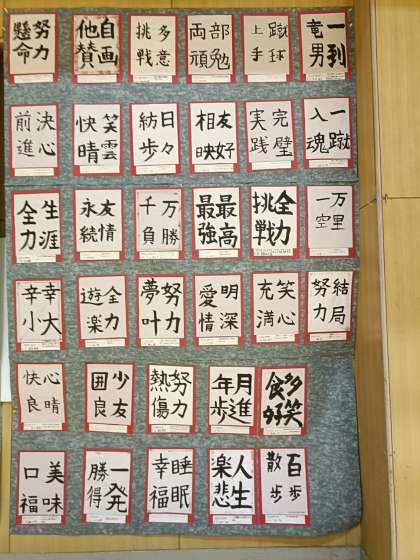 努力
懸命
自画
他賛
多意
挑戦
部勉
両頑
蹴球
上手
一到
竜男
決心
前進
笑雲
快晴
日々
紡歩
友好
相映
完璧
実践
一蹴
入魂
生涯
全力
友情
永続
万勝
千負
最高
最強
全力
挑戦
万里
一空
幸大
辛小
全力
遊楽
努力
夢叶
明深
愛情
笑心
充満
結局
努力
心晴
快良
少友
囲良
努力
熱傷
月進
年歩
多笑
食好
美味
口福
一発
勝得
睡眠
幸福
人生
楽悲
百歩
散歩